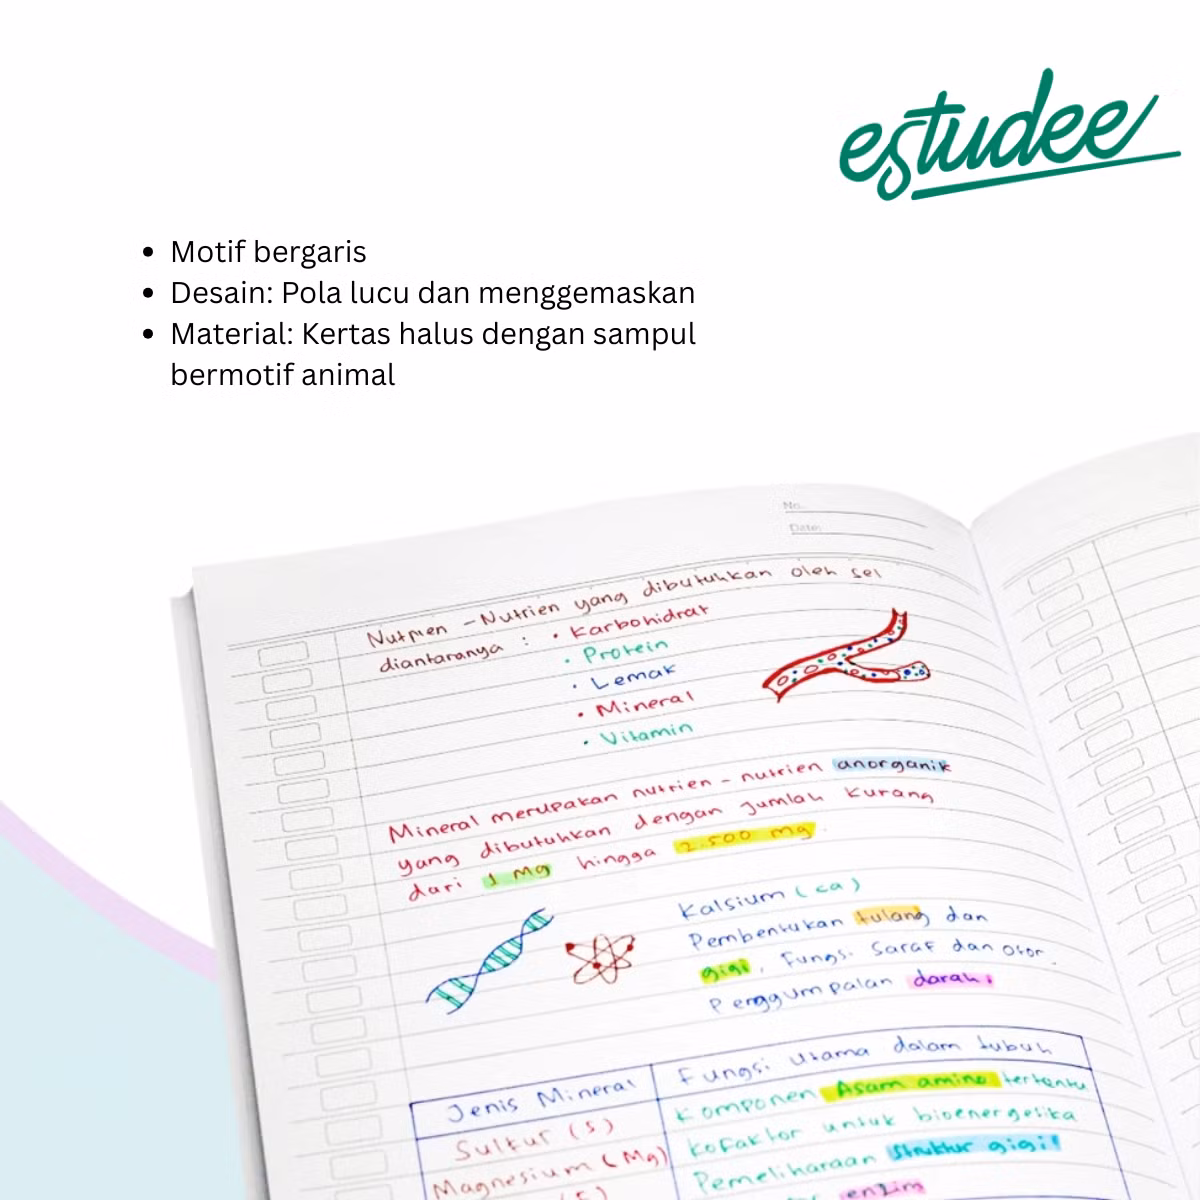 estudee
Motif bergaris
Desain: Pola lucu dan menggemaskan
Material: Kertas halus dengan sampul
bermotif animal
No.
Date:
Nutrien - Nutrien yang dibutuhkan oleh sel
diantaranya : • Karbohidrat
• Protein
• Lemak
• Mineral
• Vitamin
Mineral merupakan nutrien - nutrien anorganik
yang dibutuhkan dengan jumlah kurang
dari 1 Mg hingga 2.500 mg.
Kalsium (ca)
Pembentukan tulang dan
gigi, Fungsi Saraf dan otor.
Penggumpalan darah.
Jenis Mineral
Fungsi Utama dalam tubuh
Sulfur (S)
Komponen Asam amino tertentu
Kofaktor untuk bioenergetika
Magnesium (Mg)
Pemeliharaan Struktur gigi
enzim